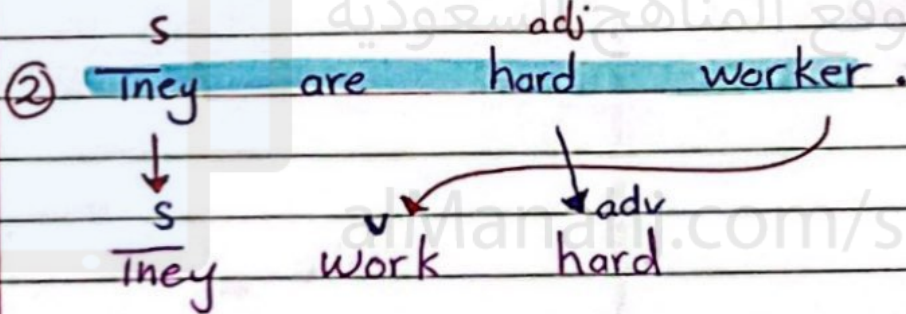 موقع المناهج السعودية
s adj
② They are hard worker.
s v adv
They work hard
almanahj.com/s